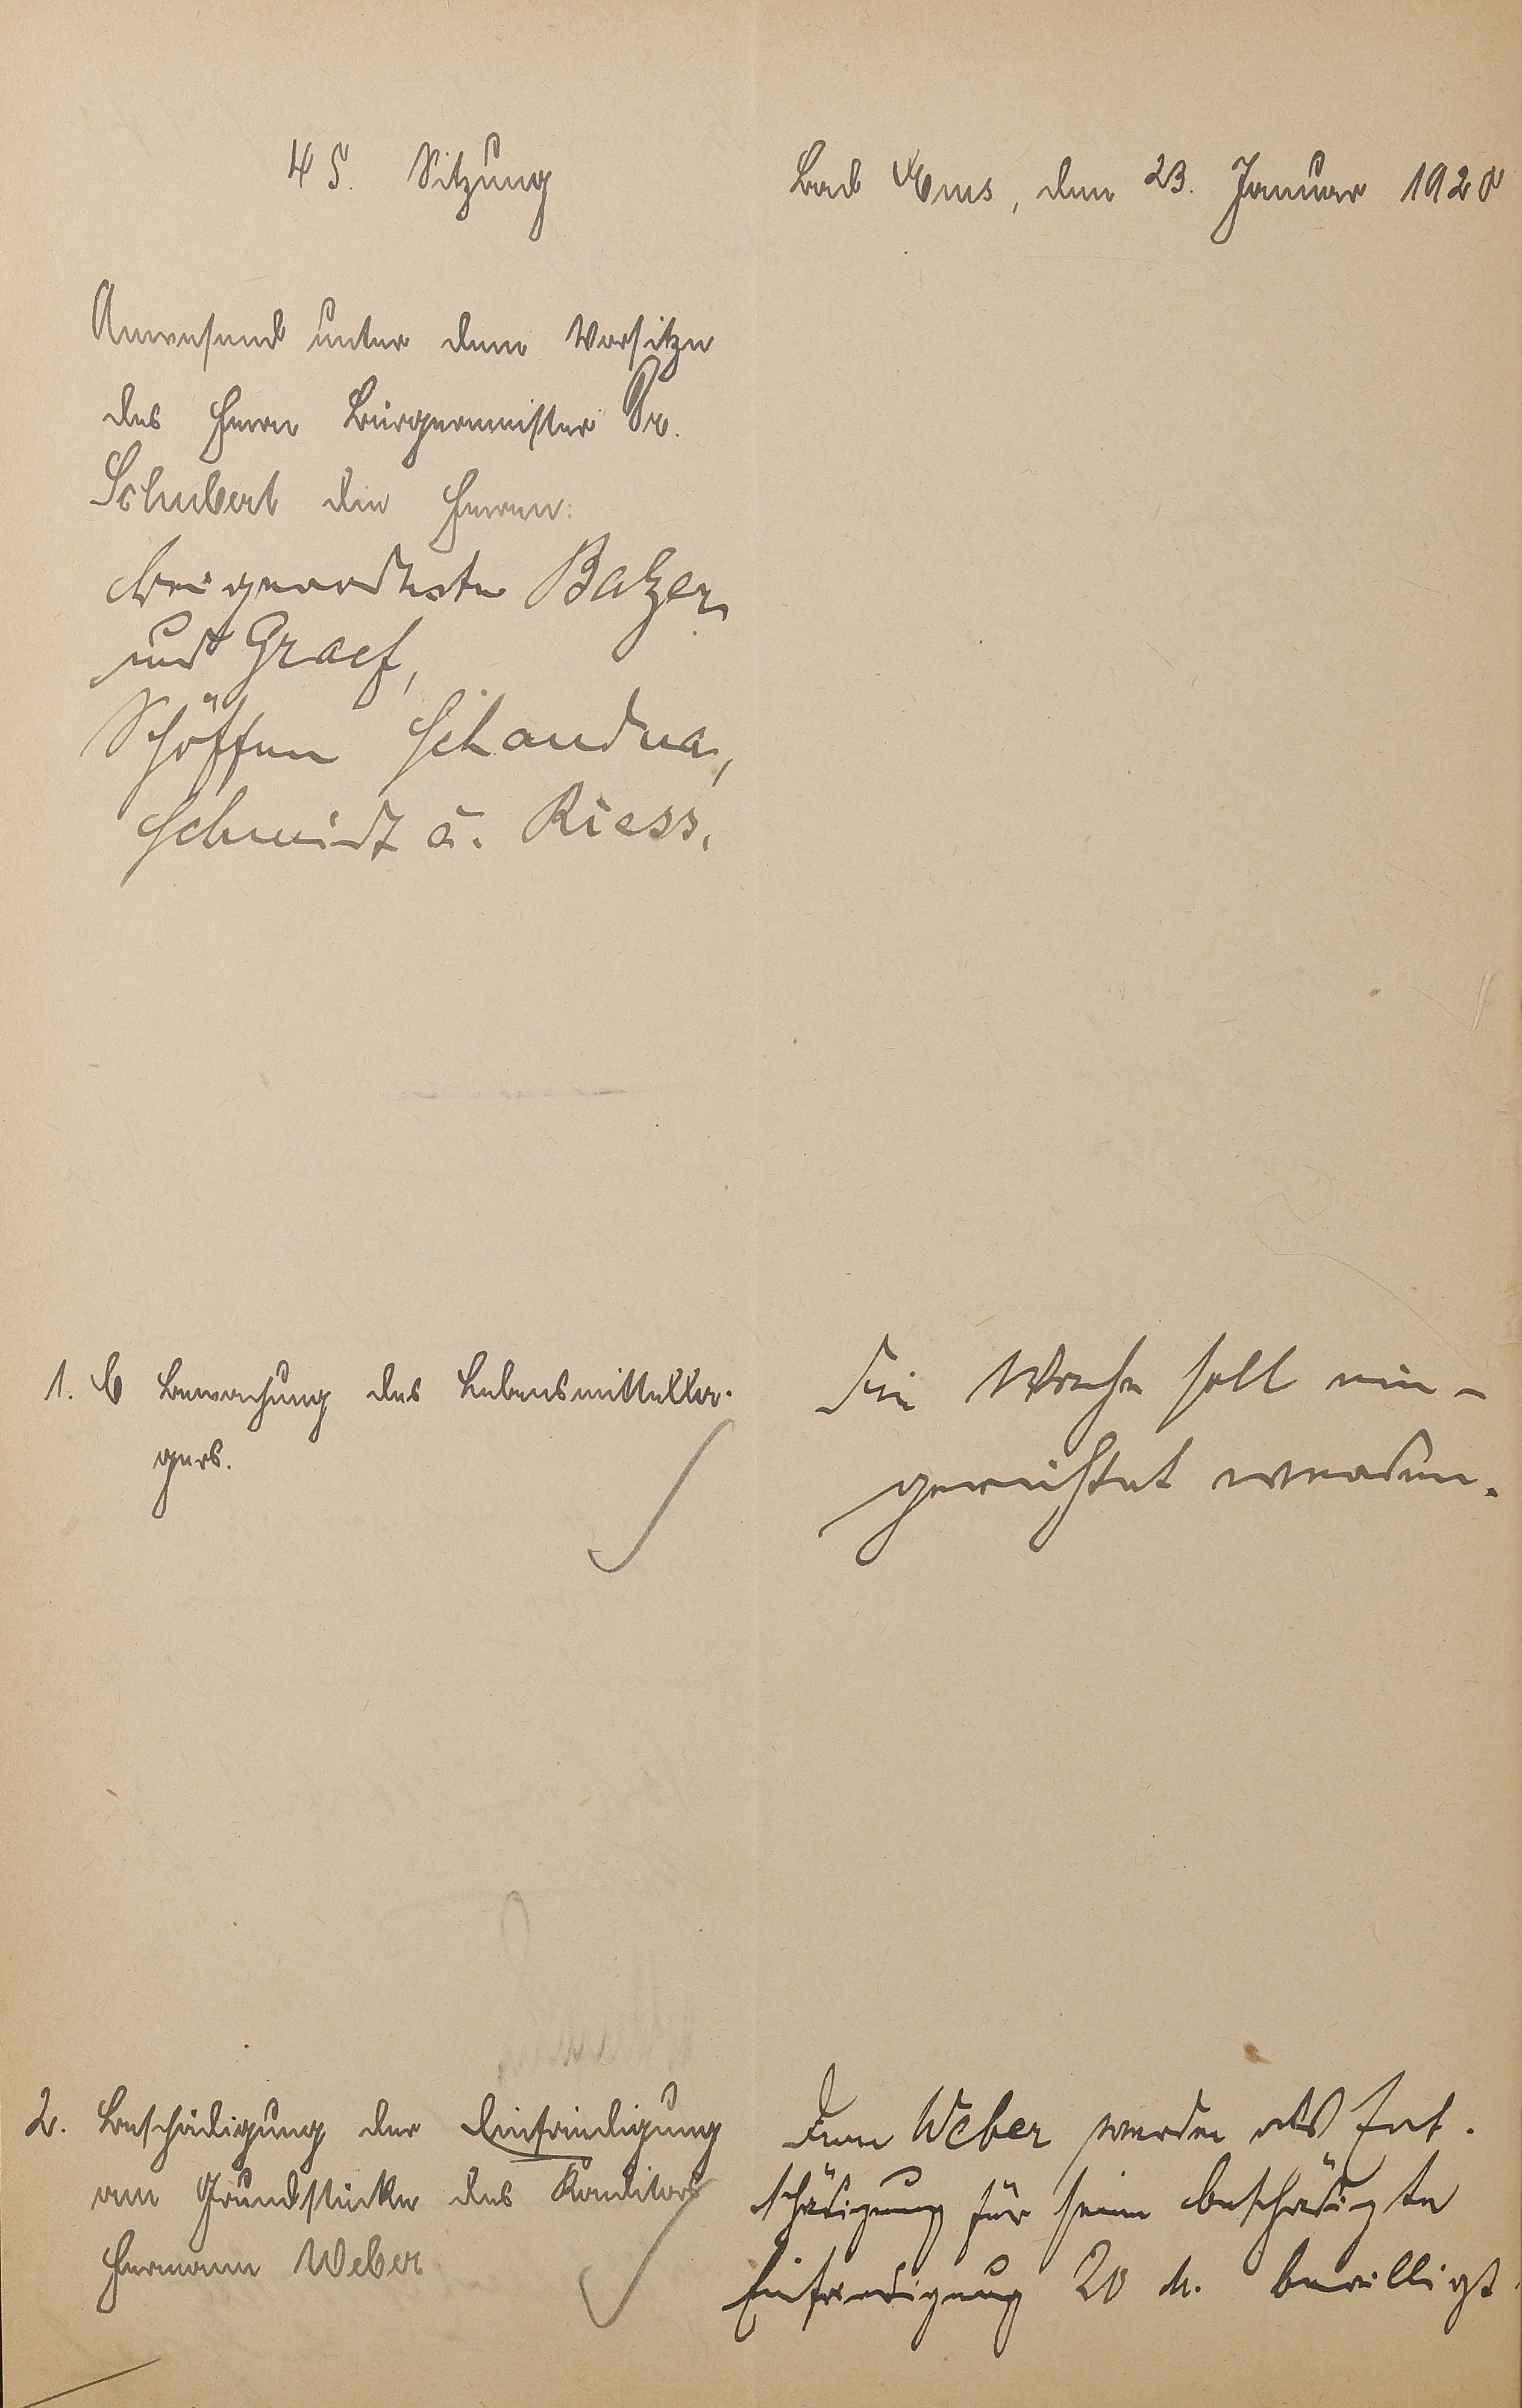 45. Sitzung
Bad Ems, den 23. Januar 1920
Anwesend unter dem Vorsitze
des Herrn Bürgermeister Dr.
Schubert die Herren:
Beigeordnete Balzer
und Graef,
Schöffen Schaudua,
Schmidt u. Riess.
1. Bewachung des Lebensmittella-
gers.
Die Wache soll ein-
gerichtet werden.
2. Beschädigung der Einfriedigung
am Grundstücke des Konditors
Hermann Weber
Dem Weber werden als Ent-
schädigung für seine beschädigte
Einfriedigung 20 M. bewilligt.